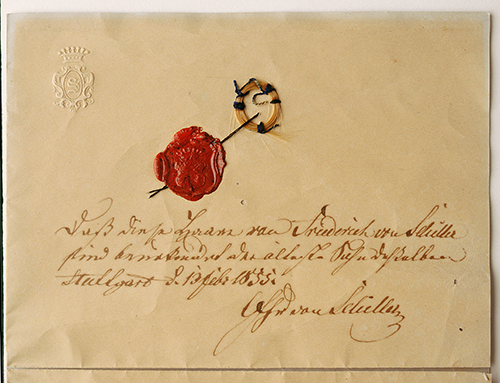 Daß diese Haare von Friedrich von Schiller
sind beurkundet der älteste Sohn desselben
Stuttgart d. 13 Febr 1855.
Chr von Schiller